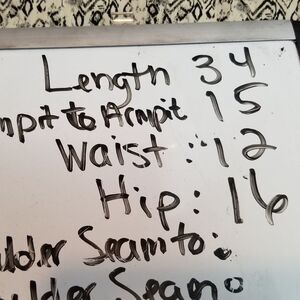 Length 34
mpit to Armpit 15
Waist : 12
Hip : 16
ulder Seam to :
ulder Seam